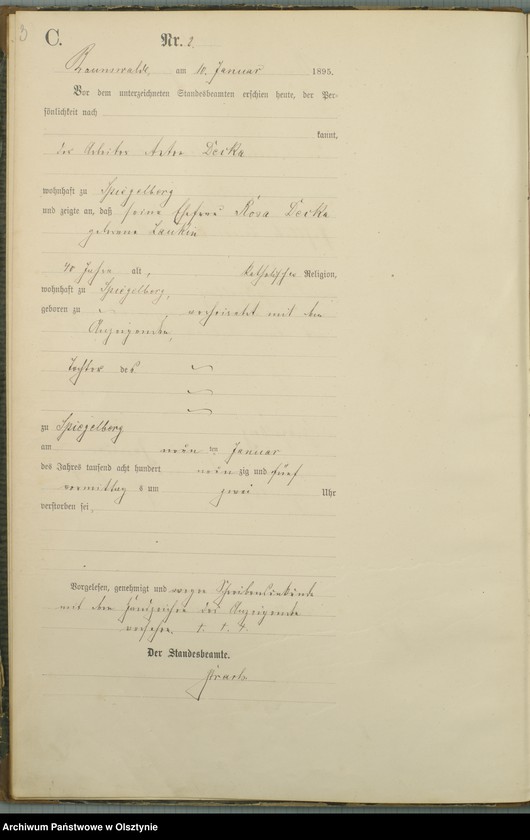 3
C.
Nr. 2.
Braunswalde, am 10. Januar 1895.
Vor dem unterzeichneten Standesbeamten erschien heute, der Per-
sönlichkeit nach
kannt,
der Arbeiter Decka
wohnhaft zu Spiegelberg
und zeigte an, daß seine Ehefrau Rosa Decka
geborene
40 Jahre alt, katholischer Religion,
wohnhaft zu Spiegelberg,
geboren zu , verheirathet mit dem
Anzeigenden,
Tochter des
zu Spiegelberg
am neun ten Januar
des Jahres tausend acht hundert neun zig und fünf
vormittag s um zwei Uhr
verstorben sei,
Vorgelesen, genehmigt und wegen Schreibensunkunde
mit dem Handzeichen des Anzeigende
versehen. † † †.
Der Standesbeamte.
Archiwum Państwowe w Olsztynie